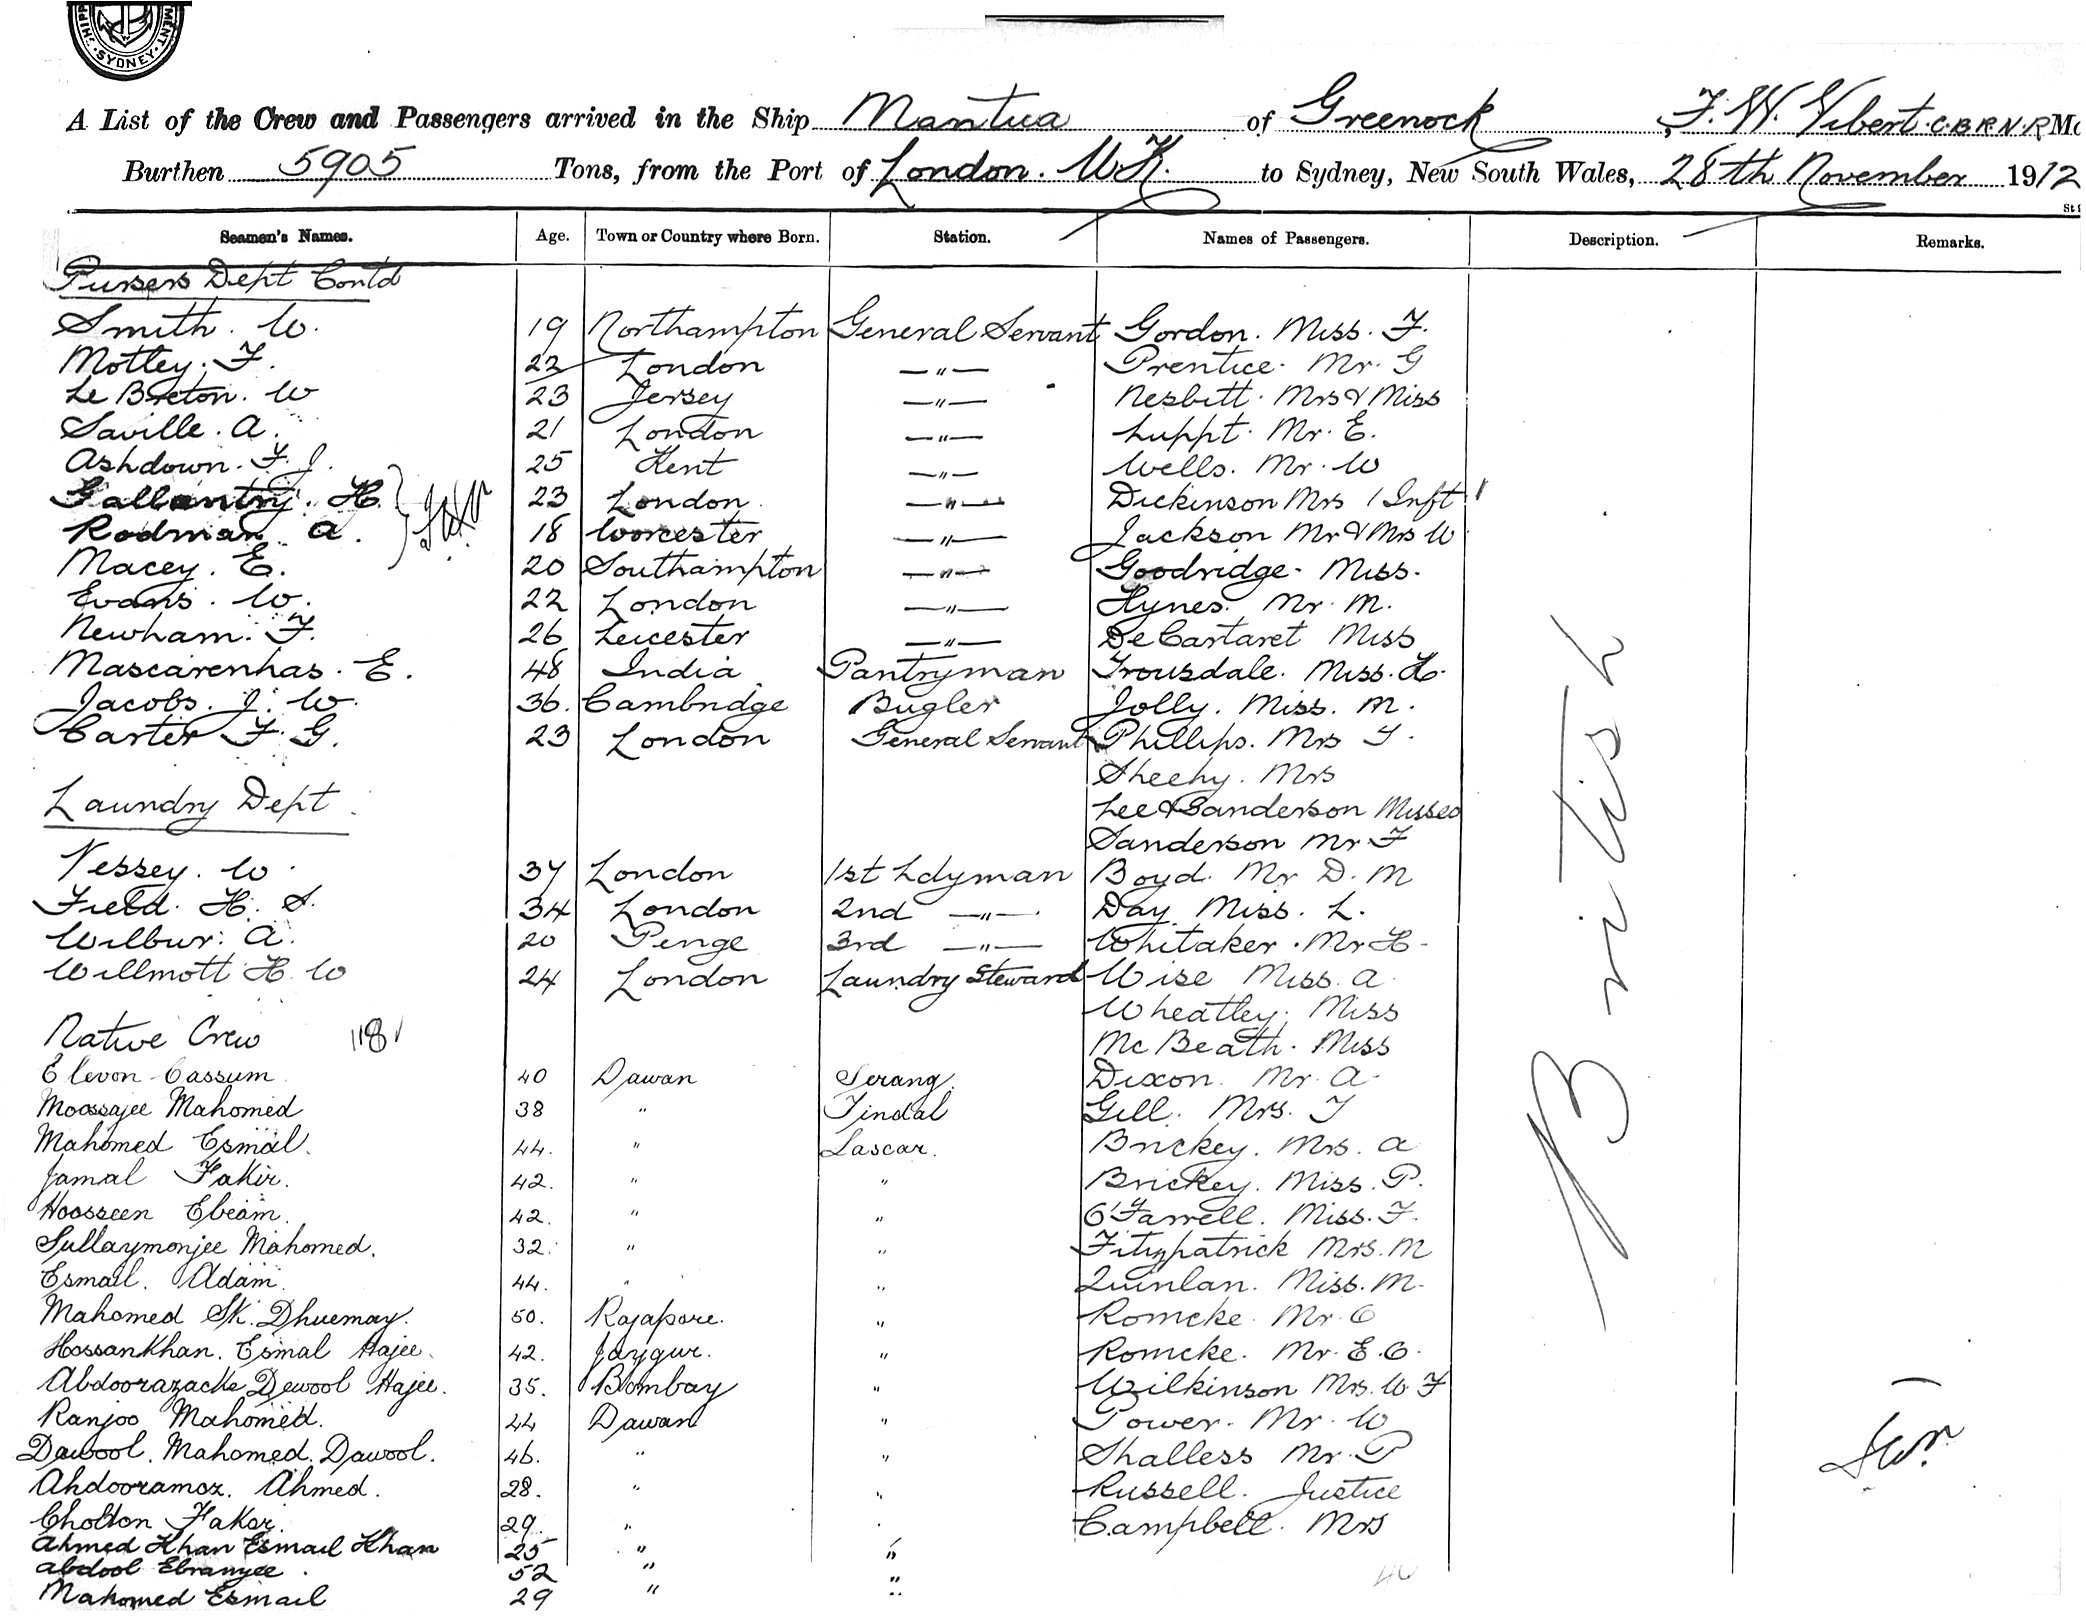 SYDNEY
A List of the Crew and Passengers arrived in the Ship Mantua of Greenock, F. W. Vibert. C.B. R.N.R
Burthen 5905 Tons, from the Port of London. U.K. to Sydney, New South Wales, 28th November 1912
Seamen's Names. Age. Town or Country where Born. Station. Names of Passengers. Description. Remarks.
Pursers Dept Contd
Smith. W. 19 Northampton General Servant Gordon. Miss. F.
Motley. F. 22 London —"— Prentice. Mr. G
Le Breton. W 23 Jersey —"— Nesbitt. Mrs & Miss
Saville. A. 21 London —"— Luppt. Mr. E.
Ashdown. F. J. 25 Kent —"— Wells. Mr. W
Gallantry. H. 23 London —"— Dickinson Mrs 1 Inft
Rodman A. 18 Worcester —"— Jackson Mr & Mrs W
Macey. E. 20 Southampton —"— Goodridge. Miss.
Evans. W. 22 London —"— Hynes. Mr. M.
Newham. F. 26 Leicester —"— De Cartaret Miss
Mascarenhas. E. 48 India Pantryman Trousdale. Miss. H.
Jacobs. J. W. 36. Cambridge Bugler Jolly. Miss. M.
Carter F. G. 23 London General Servant Phillips. Mrs F.
Sheehy. Mrs
Laundry Dept Lee & Sanderson Misses
Sanderson Mr F
Vessey. W. 37 London 1st Ldyman Boyd. Mr D. M
Field. H. S. 34 London 2nd —"— Day Miss. L.
Wilbur. A. 20 Penge 3rd —"— Whitaker. Mr H.
Willmott H. W 24 London Laundry Steward Wise Miss. A
Wheatley. Miss
Native Crew 118 Mc Beath. Miss
Elevon Cassum 40 Dawan Serang. Dixon. Mr. A.
Moossajee Mahomed 38 " Tindal Gill. Mrs. F
Mahomed Esmal. 44. " Lascar. Brickey. Mrs. A
Jamal Fakir. 42. " " Brickey. Miss. P.
Hoosseen Ebeam. 42. " " O'Farrell. Miss. F.
Sullaymonjee Mahomed. 32. " " Fitzpatrick Mrs. M
Esmail. Adam. 44. " " Quinlan. Miss. M.
Mahomed Sk. Dhuemay. 50. Rajapore. " Romcke. Mr. O
Hossankhan. Esmal Hajee. 42. Jaygur. " Romcke. Mr. E. O.
Abdoorazacke Dewool Hajee. 35. Bombay " Wilkinson Mrs. W. F
Ranjoo Mahomed. 44 Dawan " Power. Mr. W
Dawool. Mahomed. Dawool. 46. " " Shalless Mr. P
Ahdooramoz. Ahmed. 28. " " Russell. Justice
Cholton Fakor. 29. " " Campbell. Mrs
Ahmed Khan Esmail Khan 25 " "
Abdool Ebranjee. 52 " "
Mahomed Esmail 29 " "
British